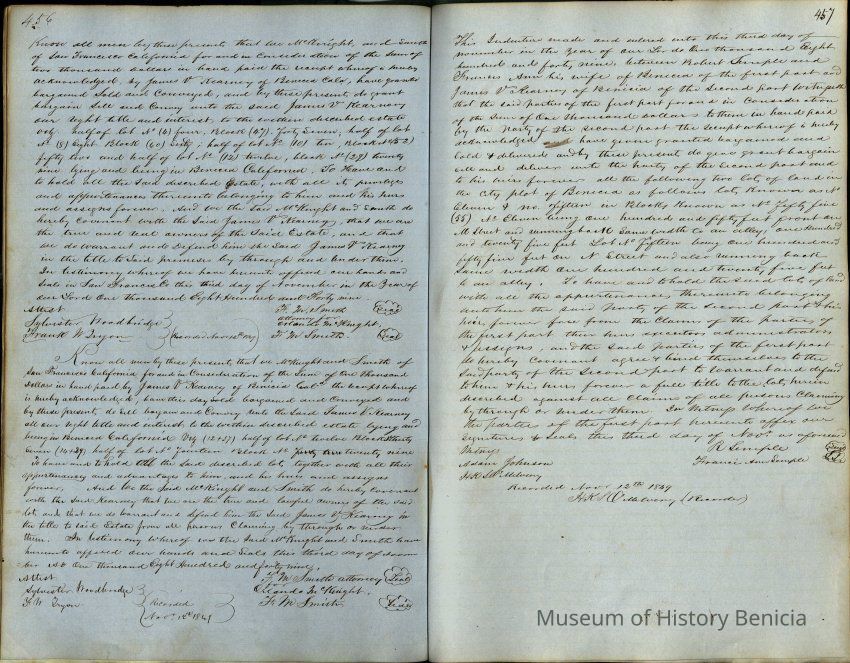 456
Know all men by these presents that we McKnight, and Smith
of San Francisco California for and in Consideration of the Sum of
two thousand dollars in hand paid the receipt whereof is hereby
acknowledged, by James V Kearney of Benicia Cala, have granted
bargained Sold and Conveyed, and by these presents do grant
bargain Sell and Convey unto the said James V Kearney
our right title and interest to the within described estate
half of lot No (4) four, Block (47) Forty Seven, half of lot
No (8) Eight Block (60) Sixty; half of lot No (10) ten, Block No (52)
fifty two and half of lot No (12) twelve, block No (29) twenty
nine lying and being in Benicia California. To Have and
to hold all the Said described Estate, with all its privileges
and appurtenances thereunto belonging to him and his heirs
and assigns forever. And we the Said McKnight and Smith do
hereby Covenant with the Said James V Kearney, that we are
the true and real owners of the Said Estate, and that
we do warrant and Defend him the Said James V Kearny
in the title to Said premises by through and under them.
In testimony whereof we have hereunto affixed our hands and
Seals in San Francisco this third day of November in the Year of
our Lord One thousand Eight Hundred and Forty nine
Attest
F. M. Smith
attorney for
Orlando McKnight
F. M. Smith
Seal
Seal
Sylvester Woodbridge
Frank W Tryon
Know all men by these presents, that we McKnight and Smith of
San Francisco California for and in Consideration of the Sum of two thousand
Dollars in hand paid by James V Kearney of Benicia Cala the receipt whereof
is hereby acknowledged, have this day sold bargained and Conveyed and
by these presents, do sell bargain and Convey unto the Said James V Kearney
all our right title and interest to the within described estate lying and
being in Benicia California Viz (12+37) half of lot No twelve Block thirty
Seven (14+29) half of lot No fourteen Block No twenty nine
To have and to hold the said described lot, together with all their
appurtenances and advantages to him, and his heirs and assigns
forever. And we the Said McKnight and Smith do hereby Covenant
with the Said Kearney that we are the true and lawful owners of the Said
lot, and that we do warrant and defend him the Said James V Kearney in
the title to Said Estate from all persons Claiming by through or under
them. In testimony whereof we the Said McKnight and Smith have
hereunto affixed our hands and Seals this third day of Novem
ber A.D. One thousand Eight Hundred and forty nine,
Attest
F. M Smith attorney
for
Orlando McKnight.
F. M Smith
Seal
Seal
Sylvester Woodbridge
F. W. Tryon
Recorded
Nov. 12th 1849
457
This Indenture made and entered into this third day of
november in the Year of our Lord One thousand Eight
hundred and forty, nine between Robert Semple and
Frances Ann his wife of Benicia of the first part and
James V Kearney of Benicia of the Second part Witnesseth
that the said parties of the first part for and in Consideration
of the Sum of One thousand Dollars to them in hand paid
by the Party of the Second part the receipt whereof is hereby
acknowledged have given granted bargained and
Sold & delivered and by these presents do give grant bargain
Sell and deliver unto the party of the Second part and
to his heirs forever all the following two lots of land in
the City plat of Benicia as follows lots Known as No
Eleven & no. fifteen in Block Known as No Fifty five
(55) No Eleven being one hundred and fifty feet front on
M Street and running back the Same width to an alley, one hundred
and twenty five feet Lot No Fifteen being one hundred and
fifty five feet on N Street and also running back
Same width One hundred and twenty, five feet
to an alley. To have and to hold the Said lots of land
with all the appurtenances thereunto belonging
unto him the Said Party of the Second part & his
heirs forever free from the Claims of the parties of
the first part their heirs executors administrators
& assigns, and the Said parties of the first part
do hereby Covenant agree & bind themselves to the
Said party of the Second part to warrant and defend
to him & his heirs forever a full title to the lots, herein
described against all Claims of all persons Claiming
by through or under them. In Witness Whereof we
the parties of the first part hereunto affix our
signatures & Seals the third day of Novr. as aforesaid
Witness
R Semple
Frances Ann Semple
Adam Johnson
Recorded Nov 12th 1849
(Recorder)
Museum of History Benicia